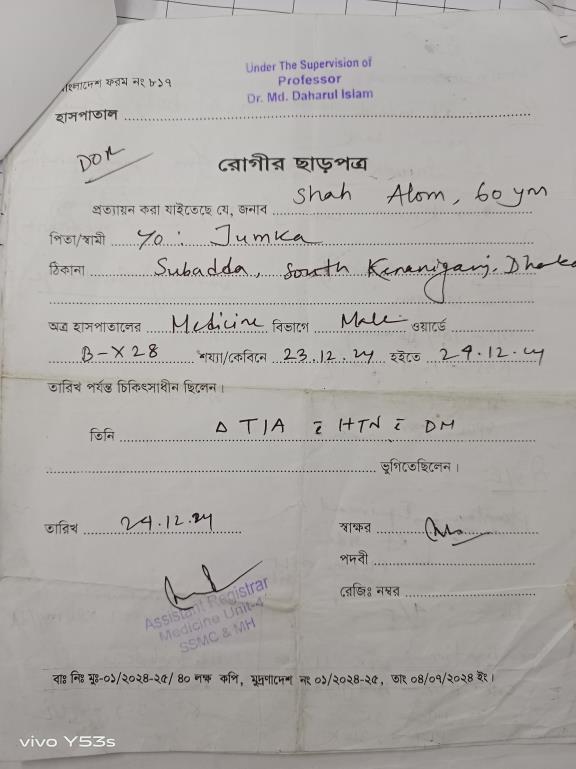 Under The Supervision of
Professor
Dr. Md. Daharul Islam
বাংলাদেশ ফরম নং ৮১৭
হাসপাতাল
রোগীর ছাড়পত্র
প্রত্যায়ন করা যাইতেছে যে, জনাব Shah Alom, 60 yrs
পিতা/স্বামী : Jumka
ঠিকানা Subadda, South Keraniganj, Dhaka
অত্র হাসপাতালের Medicine বিভাগে Male ওয়ার্ডে
B-X 28 শয্যা/কেবিনে 23.12.24 হইতে 24.12.24
তারিখ পর্যন্ত চিকিৎসাধীন ছিলেন।
তিনি Δ TIA c̄ HTN c̄ DM
ভুগিতেছিলেন।
তারিখ 24.12.24 স্বাক্ষর
পদবী
রেজিঃ নম্বর
Assistant Registrar
Medicine Unit-4
SSMC & MH
বাঃ নিঃ মুঃ-০১/২০২৪-২৫/ ৪০ লক্ষ কপি, মুদ্রণাদেশ নং ০১/২০২৪-২৫, তাং ০৪/০৭/২০২৪ ইং।
vivo Y53s